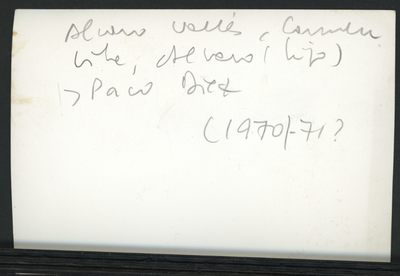 Alvaro Vallés, Carmen
Vite, Alvaro (hijo)
y Paco Diez
(1970/-71?